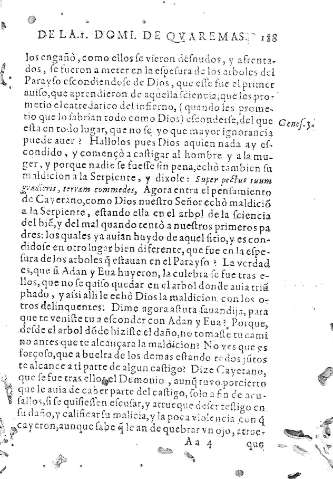 DE LA.1. DOMI. DE QVAREMAS. 188
los engañó, como ellos se vieron desnudos, y afrenta-
dos, se fueron a meter en la espesura de los arboles del
Parayso escondiendose de Dios, que esse fue el primer
auiso, que aprendieron de aquella sciencia, que les pro-
metio el catredatico del infierno, (quando les prome-
tio que lo sabrian todo como Dios) esconderse, del que
esta en todo lugar, que no se yo que mayor ignorancia
puede auer? Hallolos pues Dios aquien nada ay es-
condido, y començò a castigar al hombre y a la mu-
ger, y porque nadie se fuesse sin pena, echò tambien su
maldicion a la Serpiente, y dixole: Super pectus tuum
gradieris, terram commedes, Agora entra el pensamiento
de Cayetano, como Dios nuestro Señor echò maldiciõ
a la Serpiente, estando ella en el arbol de la sciencia
del biẽ, y del mal quando tentó a nuestros primeros pa
dres: los quales ya auian huydo de aquel sitio, y es con-
didose en otro lugar bien diferente, que fue en la espe-
sura de los arboles q̃ estauan en el Parayso? La verdad
es, que ũ Adan y Eua huyeron, la culebra se fue tras e-
llos, que no se quiso quedar en el arbol donde auia triũ
phado, y assi alli le echó Dios la maldicion con los o-
tros delinquentes: Dime agora astuta sauandija, para
que te veniste tu a esconder con Adan y Eua? Porque,
desde el arbol dõde hiziste el daño, no tomaste tu cami
no antes que te alcançara la maldicion? No ves que es
forçoso, que a buelta de los demas estando todos jũtos
te alcance a ti parte de algun castigo? Dize Cayetano,
que se fue tras ellos el Demonio, aunq̃ tuvo por cierto
que le auia de caber parte del castigo, solo a fin de acu-
sallos, si se quisiessen escusar, y atrueque de ser testigo en
su daño, y calificar su malicia, y la poca violencia con q̃
cayeron, aunque sabe q̃ le an de quebrar vn ojo, atroe-
Aa 4 que
Genes.3.